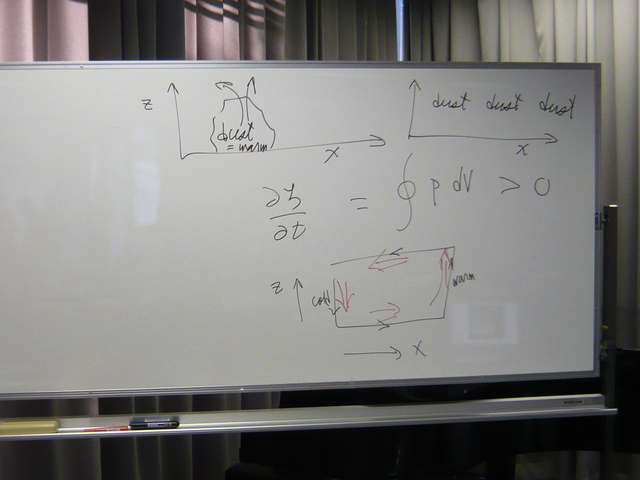 z
dust
= warm
x
dust dust dust
x
∂ζ/∂t = ∮ p dV > 0
z
cold
warm
x